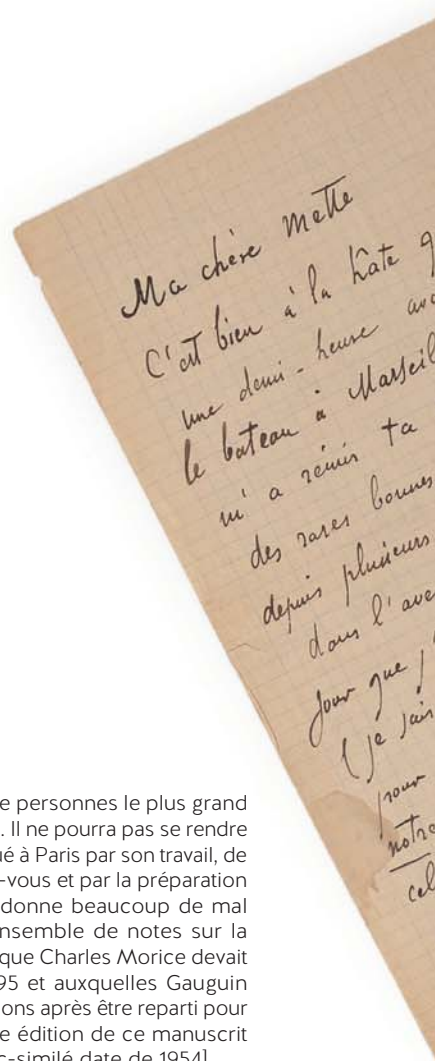 Ma chère Mette
C'est bien à la hâte q
une demi-heure ava
le bateau à Marseil
m'a remis ta
des rares bonnes
depuis plusieurs
dans l'ave
jour que j'
(je sais
pour
notre
cel
e personnes le plus grand
. Il ne pourra pas se rendre
ué à Paris par son travail, de
-vous et par la préparation
donne beaucoup de mal
nsemble de notes sur la
que Charles Morice devait
95 et auxquelles Gauguin
ons après être reparti pour
e édition de ce manuscrit
c-similé date de 1954]